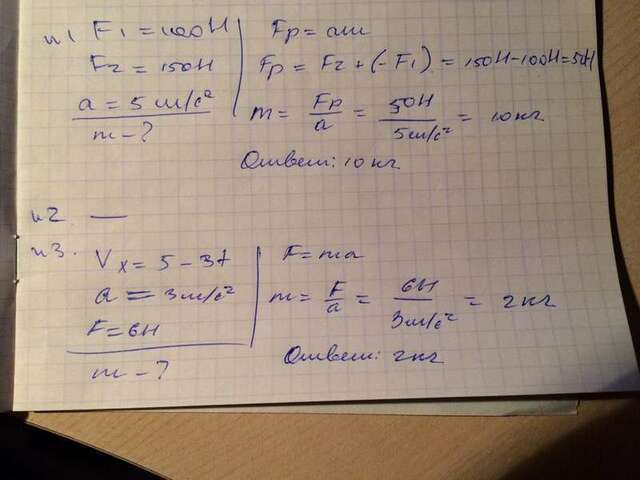 н1 F₁ = 100Н
F₂ = 150Н
a = 5 м/с²
m - ?
Fр = am
Fр = F₂ + (-F₁) = 150Н - 100Н = 50Н
m = Fр/a = 50Н/5м/с² = 10кг
Ответ: 10 кг
н2. —
н3. Vx = 5 - 3t
a = 3м/с²
F = 6Н
m - ?
F = ma
m = F/a = 6Н/3м/с² = 2кг
Ответ: 2кг